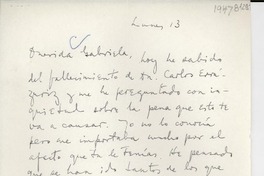 Lunes 13
Querida Gabriela, hoy he sabido
del fallecimiento de Dn. Carlos Errá-
zuriz y me he preguntado con in-
quietud sobre la pena que esto te
va a causar. Yo no lo conocía
pero me importaba mucho por el
afecto que tú le tenías. He pensado
que se han ido tantos de los que